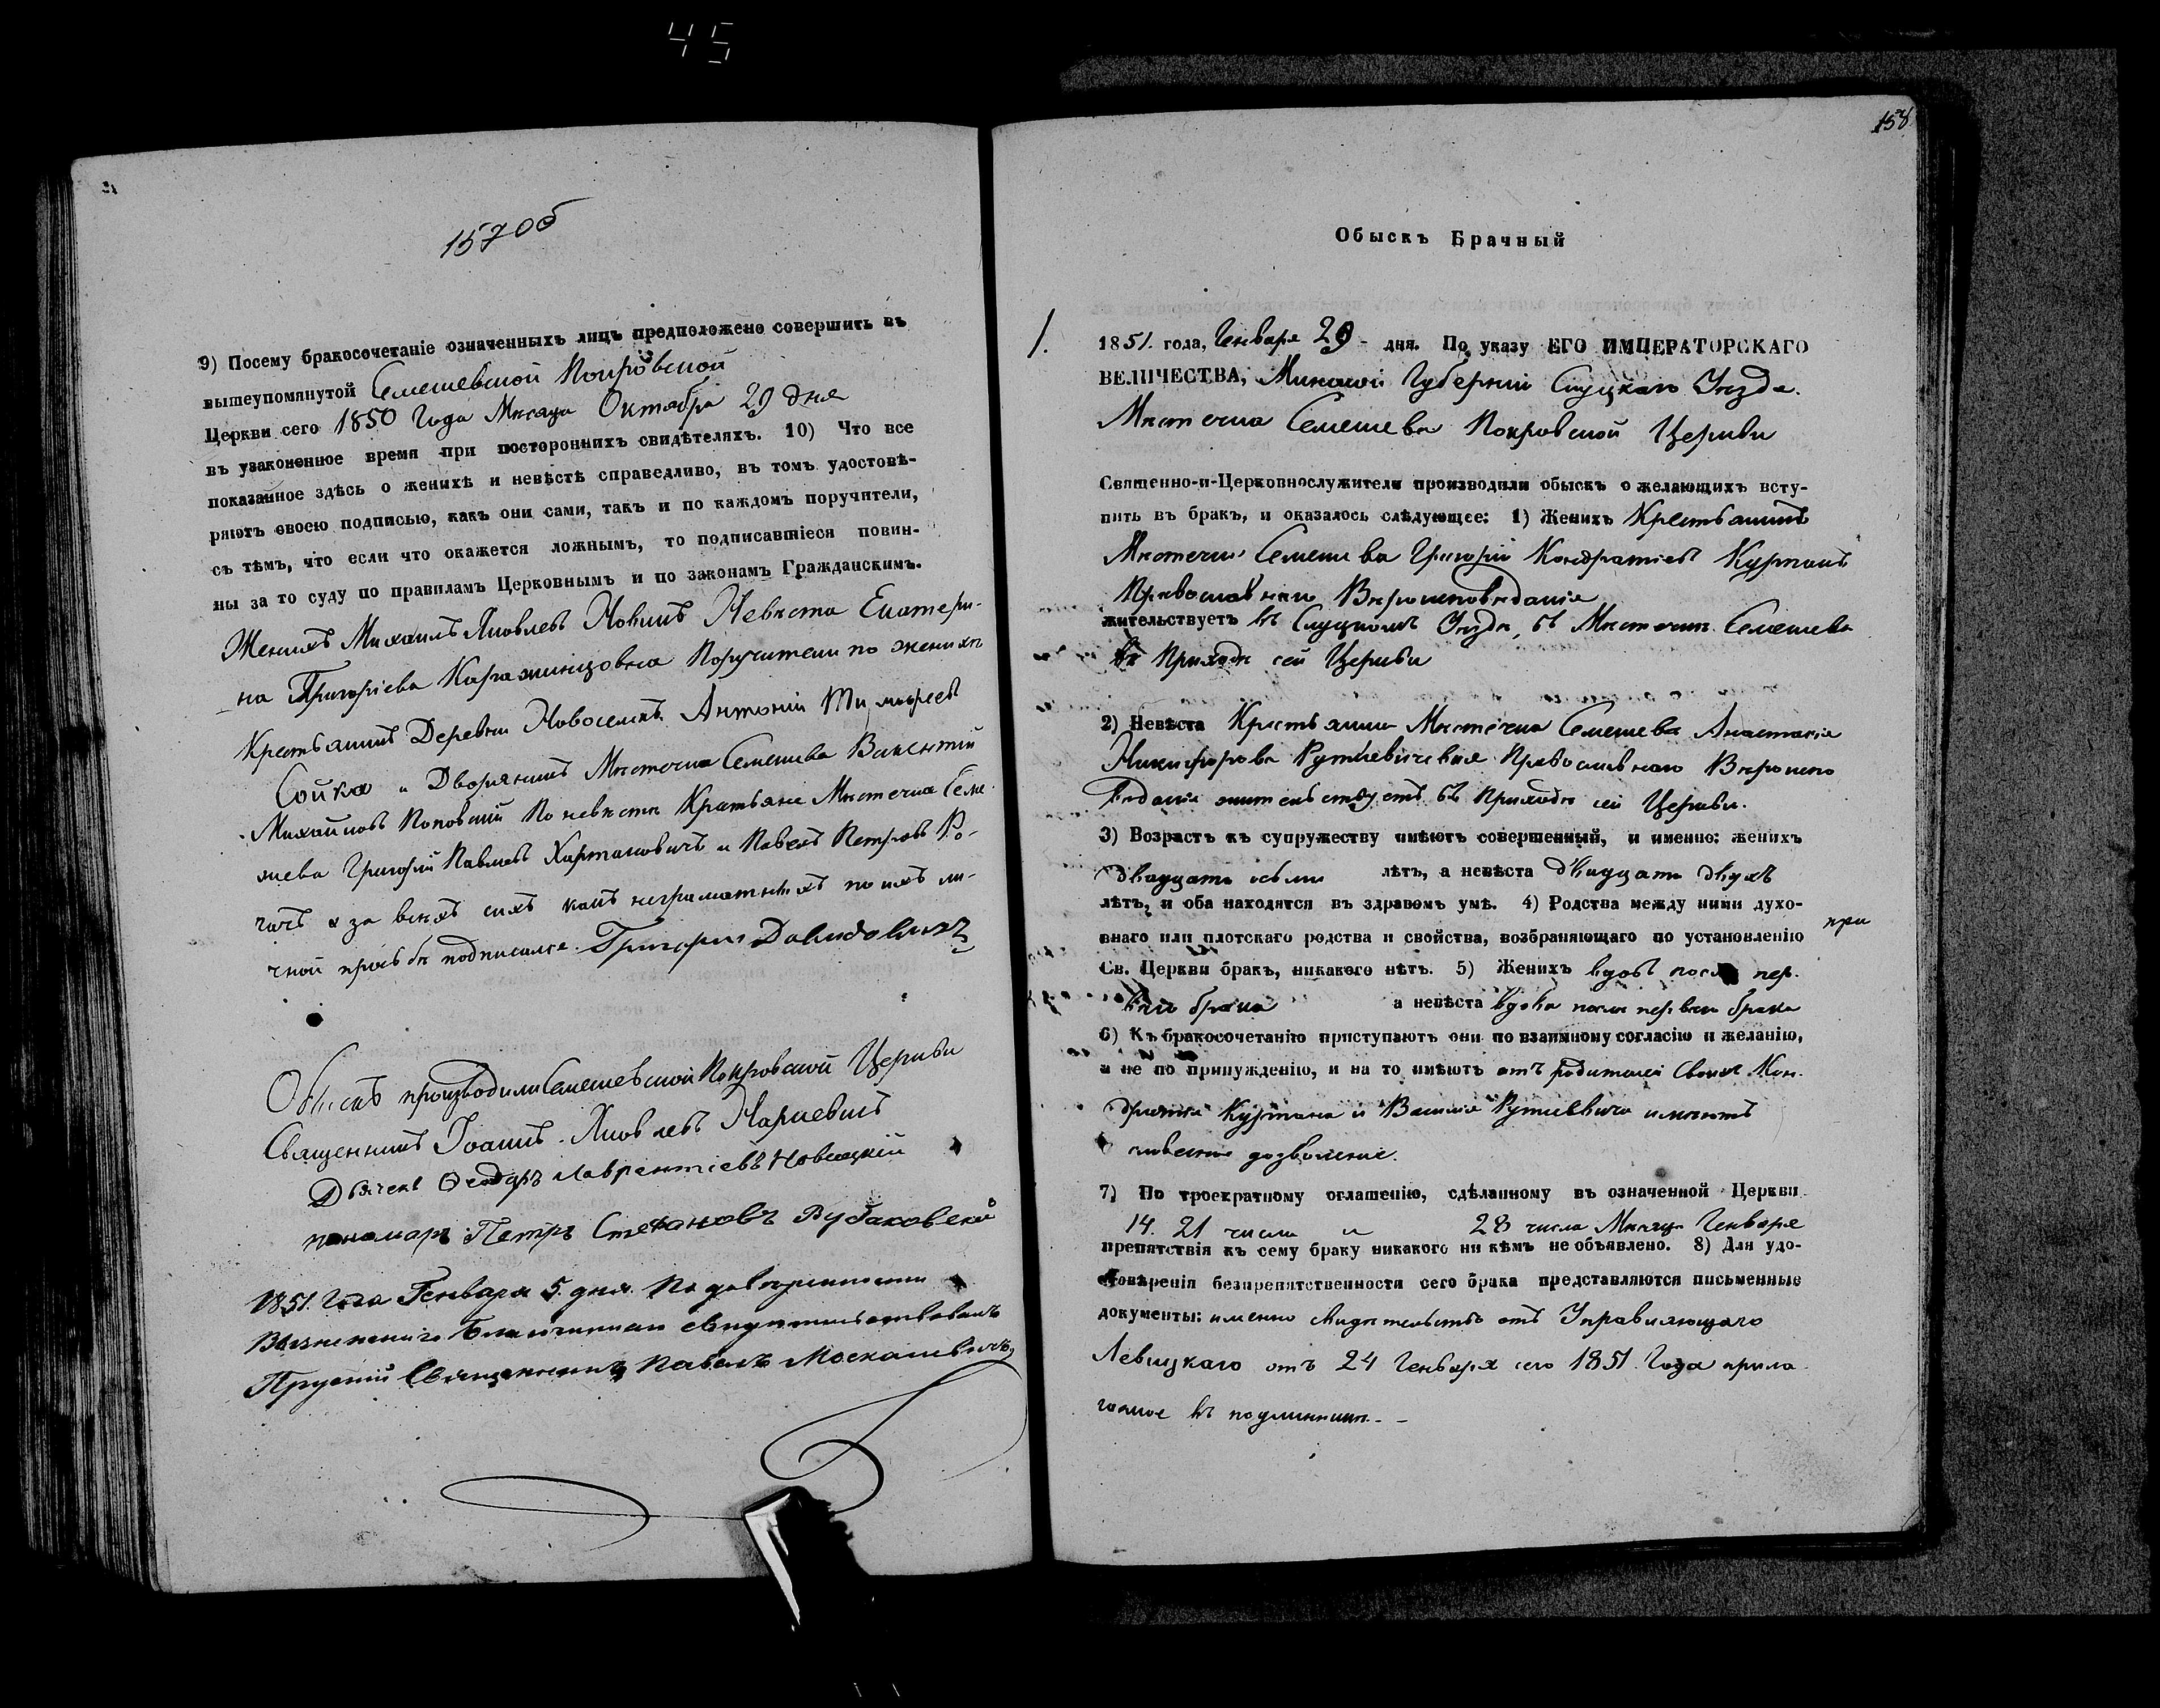 45
157 об
9) Посему бракосочетаніе означенныхъ лицъ предположено совершить въ
вышеупомянутой Семешевской Покровской
Церкви сего 1850 Года Мѣсяца Октября 29 дня
въ узаконенное время при постороннихъ свидѣтеляхъ. 10) Что все
показанное здѣсь о женихѣ и невѣстѣ справедливо, въ томъ удостовѣ-
ряютъ своею подписью, какъ они сами, такъ и по каждомъ поручители,
съ тѣмъ, что если что окажется ложнымъ, то подписавшіеся повин-
ны за то суду по правиламъ Церковнымъ и по законамъ Гражданскимъ.
Женихъ Михаилъ Яковлевъ Новикъ Невѣста Екатери-
на Григорiева Поручители по женихѣ
Крестьянинъ Деревни Антоній
Сойка и Дворянинъ Мѣстечка Семешева Викентій
Михайловъ По невѣстѣ Крестьяне Мѣстечка Семе-
шева Григорій Павловъ и Павелъ Петровъ Ро-
а за всѣхъ сихъ какъ неграматныхъ по ихъ ли-
чной прозьбѣ подписался Григорій Давидовичъ
Обыскъ производили Семешевской Покровской Церкви
Священникъ Іоаннъ Яковлевъ
Дьячекъ Ѳеодоръ Лаврентіевъ Новицкій
пономаръ Петръ Стефановъ
1851. Года Генваря 5. дня. По
свидѣтельствовалъ
Священникъ Павелъ
158
Обыскъ Брачный
1.
1851. года, Генваря 29 - дня. По указу ЕГО ИМПЕРАТОРСКАГО
ВЕЛИЧЕСТВА, Минской Губерніи Слуцкаго Уѣзда.
Мѣстечка Семешева Покровской Церкви
Священно-и-Церковнослужители производили обыскъ о желающихъ всту-
пить въ бракъ, и оказалось слѣдующее: 1) Женихъ Крестьянинъ
Мѣстечка Семешева Григорій Кондратіевъ Курманъ
Православнаго Вѣроисповѣданія
жительствуетъ въ Слуцкомъ Уѣздѣ, въ Мѣстечкѣ Семешева
въ Приходѣ сей Церкви
2) Невѣста Крестьянка Мѣстечка Семешева Анастасія
Никифорова Православнаго Вѣроиспо
вѣданія жительствуетъ въ Приходѣ сей Церкви.
3) Возрастъ къ супружеству имѣютъ совершенный, и именно: женихъ
двадцати лѣтъ, а невѣста двадцати двухъ
лѣтъ, и оба находятся въ здравомъ умѣ. 4) Родства между ними духо-
при
внаго или плотскаго родства и свойства, возбраняющаго по установленію
Св. Церкви бракъ, никакого нѣтъ. 5) Женихъ вдовъ послѣ пер-
ваго брака а невѣста вдова послѣ перваго брака
6) Къ бракосочетанію приступаютъ они по взаимному согласію и желанію,
а не по принужденію, и на то имѣютъ отъ родителей своихъ Кон-
дратія Курмана и имѣютъ
словесное дозволеніе.
7) По троекратному оглашенію, сдѣланному въ означенной Церкви
14. 21 числа и 28 числа Мѣсяца Генваря
препятствія къ сему браку никакого ни кѣмъ не объявлено. 8) Для удо-
стовѣренія безпрепятственности сего брака представляются письменные
документы: именно свидѣтельство отъ Управляющаго
Левицкаго отъ 24 Генваря сего 1851. Года прила-
гаемое въ подлинникѣ. -